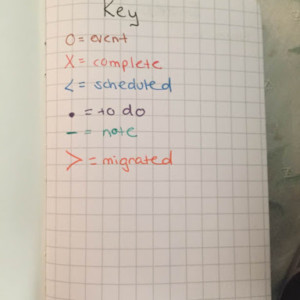 Key
O = event
X = complete
< = scheduled
• = to do
– = note
> = migrated